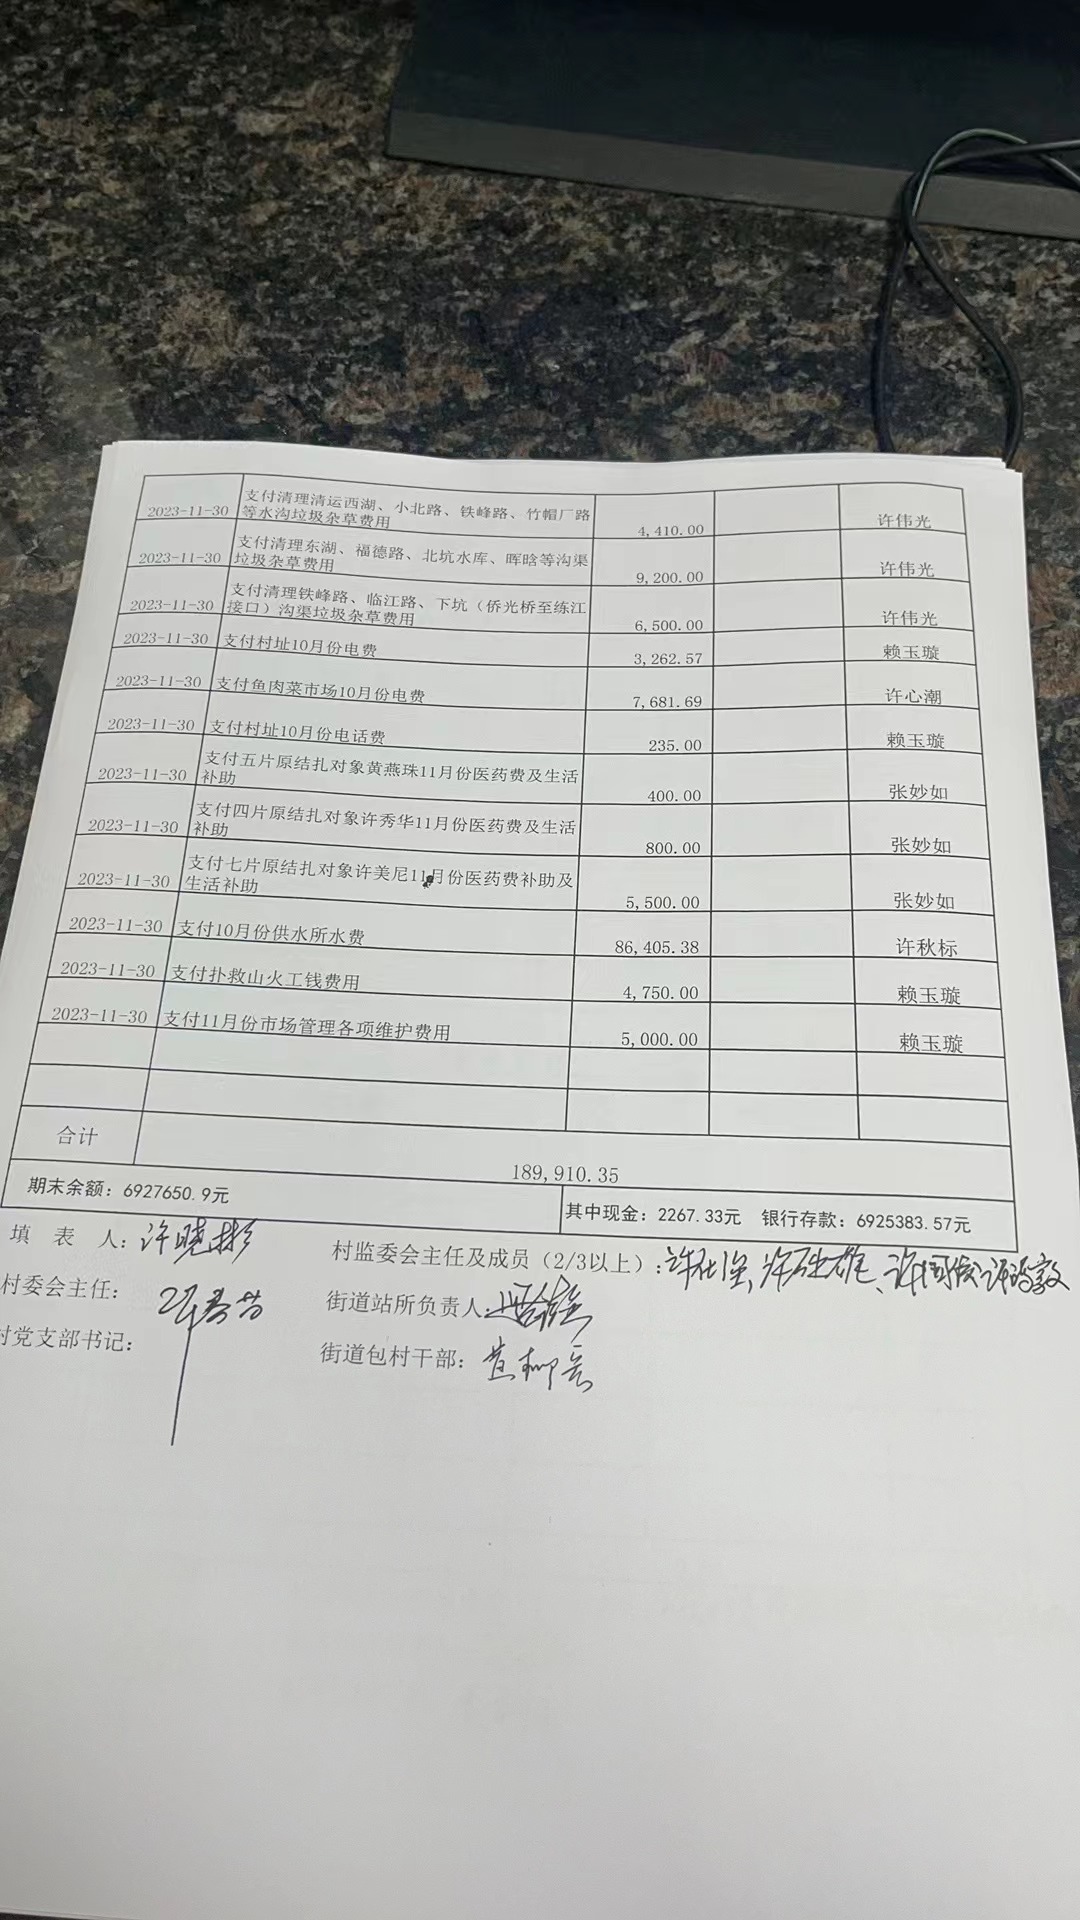 2023-11-30 支付清理清运西湖、小北路、铁峰路、竹帽厂路
等水沟垃圾杂草费用 4,410.00 许伟光
2023-11-30 支付清理东湖、福德路、北坑水库、晖晗等沟渠
垃圾杂草费用 9,200.00 许伟光
2023-11-30 支付清理铁峰路、临江路、下坑（侨光桥至练江
接口）沟渠垃圾杂草费用 6,500.00 许伟光
2023-11-30 支付村址10月份电费 3,262.57 赖玉璇
2023-11-30 支付鱼肉菜市场10月份电费 7,681.69 许心潮
2023-11-30 支付村址10月份电话费 235.00 赖玉璇
2023-11-30 支付五片原结扎对象黄燕珠11月份医药费及生活
补助 400.00 张妙如
2023-11-30 支付四片原结扎对象许秀华11月份医药费及生活
补助 800.00 张妙如
2023-11-30 支付七片原结扎对象许美尼11月份医药费补助及
生活补助 5,500.00 张妙如
2023-11-30 支付10月份供水所水费 86,405.38 许秋标
2023-11-30 支付扑救山火工钱费用 4,750.00 赖玉璇
2023-11-30 支付11月份市场管理各项维护费用 5,000.00 赖玉璇
合计 189,910.35
期末余额：6927650.9元 其中现金：2267.33元 银行存款：6925383.57元
填 表 人：许晓彬 村监委会主任及成员（2/3以上）：
村委会主任： 街道站所负责人：
村党支部书记： 街道包村干部：